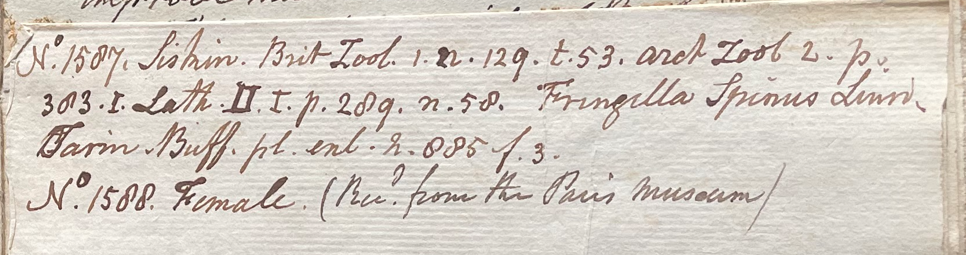 No. 1587. Siskin. Brit Zool. 1. n. 129. t. 53. arct Zool 2. p.
383. I. Lath. II. I. p. 289. n. 58. Fringilla Spinus Linn.
Tarin Buff. pl. enl. n. 885 f. 3.
No. 1588. Female. (Recd. from the Paris Museum)